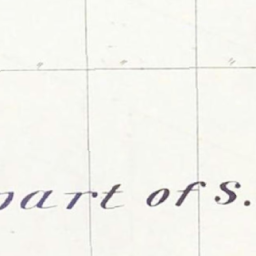 part of S.